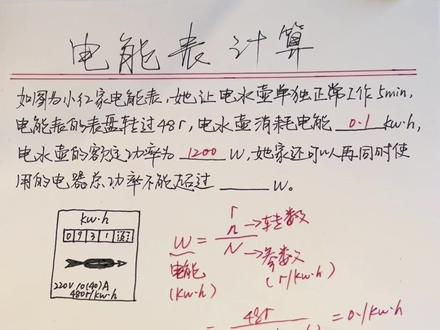 电能表计算
如图为小红家电能表,她让电水壶单独正常工作5min,
电能表的表盘转过48r,电水壶消耗电能 0.1 kw·h,
电水壶的额定功率为 1200 W,她家还可以再同时使
用的电器总功率不能超过 W。
kw·h
0 9 3 1
220V 10(40)A
480r/kw·h
W = n/N
r
→转数
→参数
电能
(kw·h)
(r/kw·h)
= 48r = 0.1kw·h